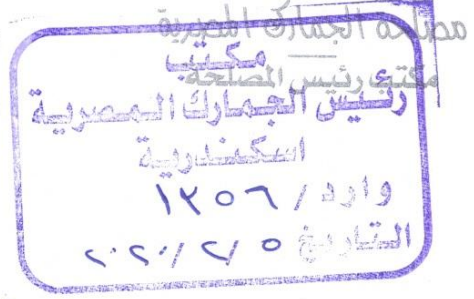 مصلحة الجمارك المصرية
مكتب رئيس المصلحة
مكتب
رئيس الجمارك المصرية
اسكندرية
وارد / ١٢٥٦
التاريخ ٥ / ٢ / ٢٠٢٠